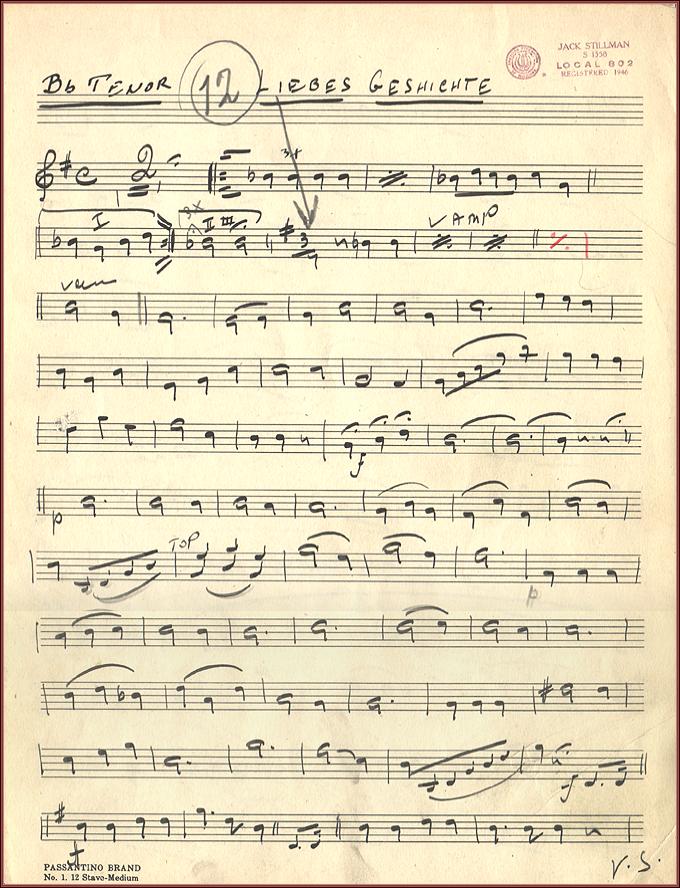 JACK STILLMAN
S 1558
LOCAL 802
REGISTERED 1946
Bb TENOR 12 LIEBES GESHICHTE
2
3x
I
3x
II III
3
VAMP
f
p
TOP
p
f
f
PASSANTINO BRAND
No. 1. 12 Stave-Medium
V.S.